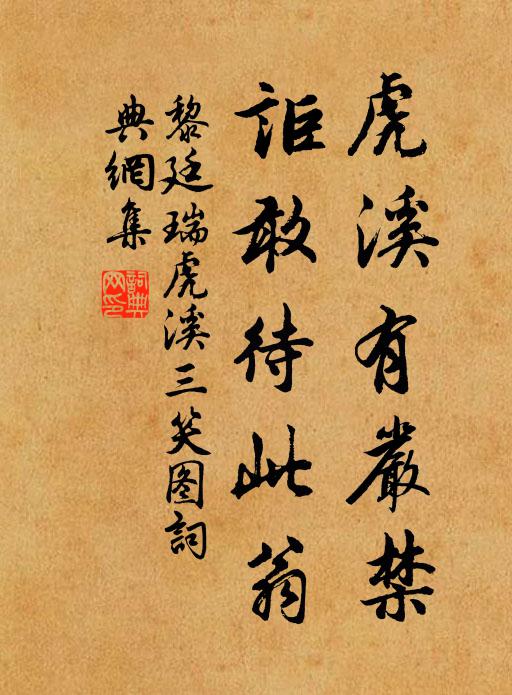 虎溪有嚴禁
詎敢待此翁
黎廷瑞虎溪三笑图詞
典網集
詞典
网印